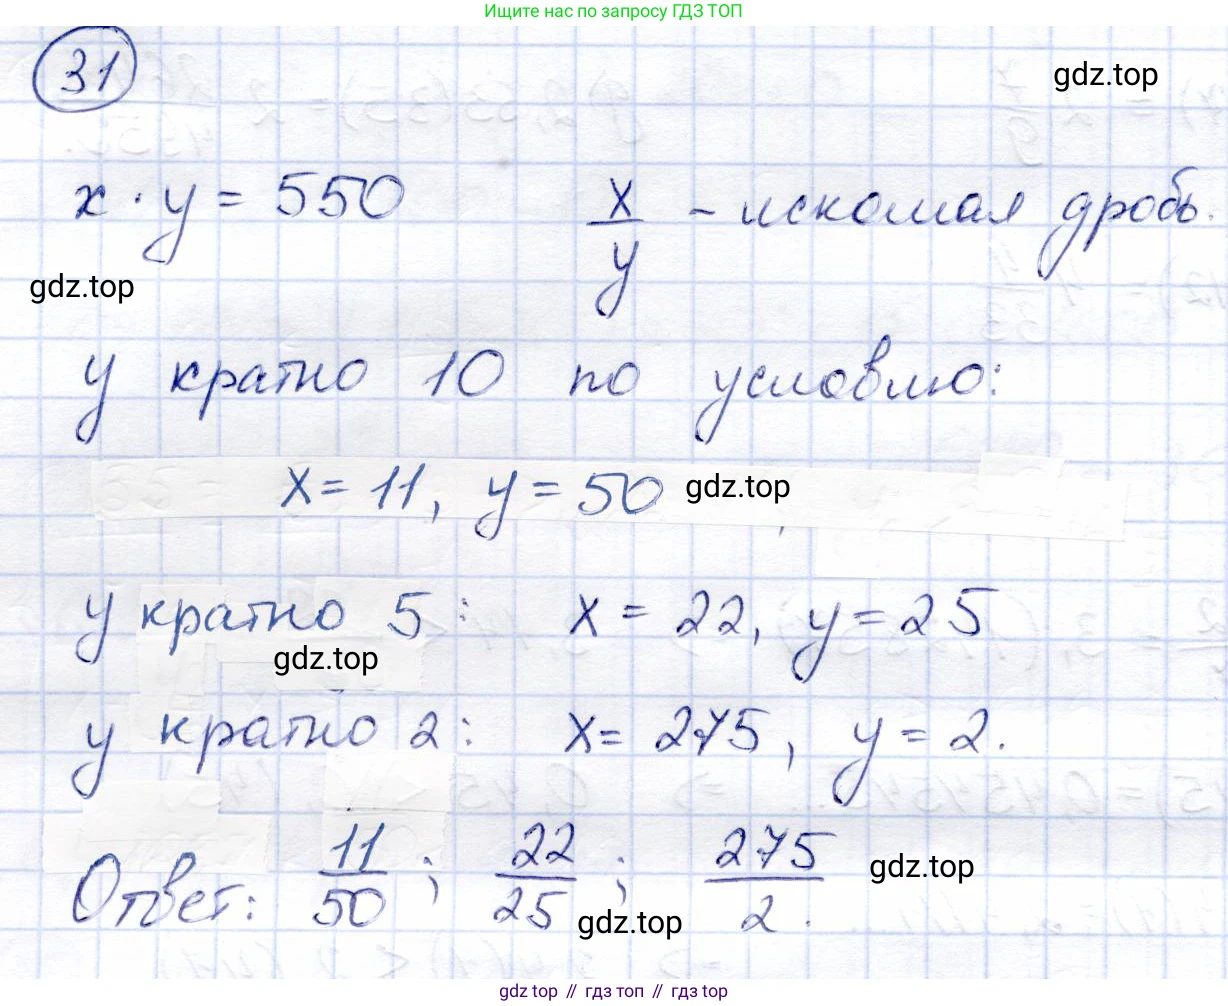 Ищите нас по запросу ГДЗ ТОП
31
gdz.top
x · y = 550    x/y - искомая дробь.
gdz.top
y кратно 10 по условию:
x = 11, y = 50 gdz.top
y кратно 5: x = 22, y = 25
gdz.top
y кратно 2: x = 275, y = 2.
Ответ: 11/50; 22/25; 275/2.
gdz.top
gdz.top
gdz top // гдз топ // гдз top